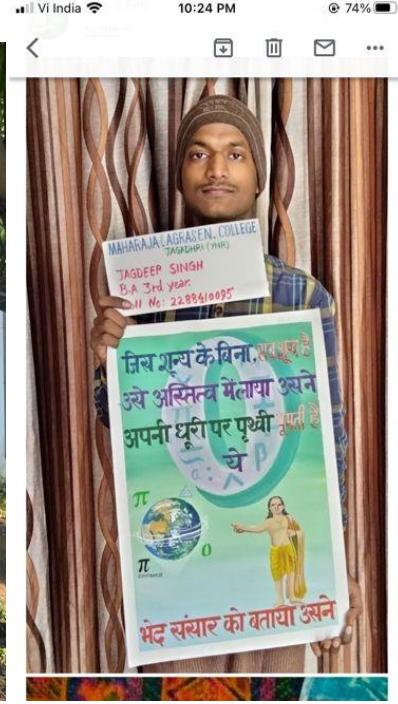 Vi India
10:24 PM
74%
MAHARAJA AGRASEN. COLLEGE
JAGADHRI (YNR)
JAGDEEP SINGH
B.A 3rd year.
Roll No: 2289410095
जिस शून्य के बिना, सब शून्य है
उसे अस्तित्व में लाया उसने
अपनी धूरी पर पृथ्वी घूमती है
ये
π
π
0
β
भेद संसार को बताया उसने